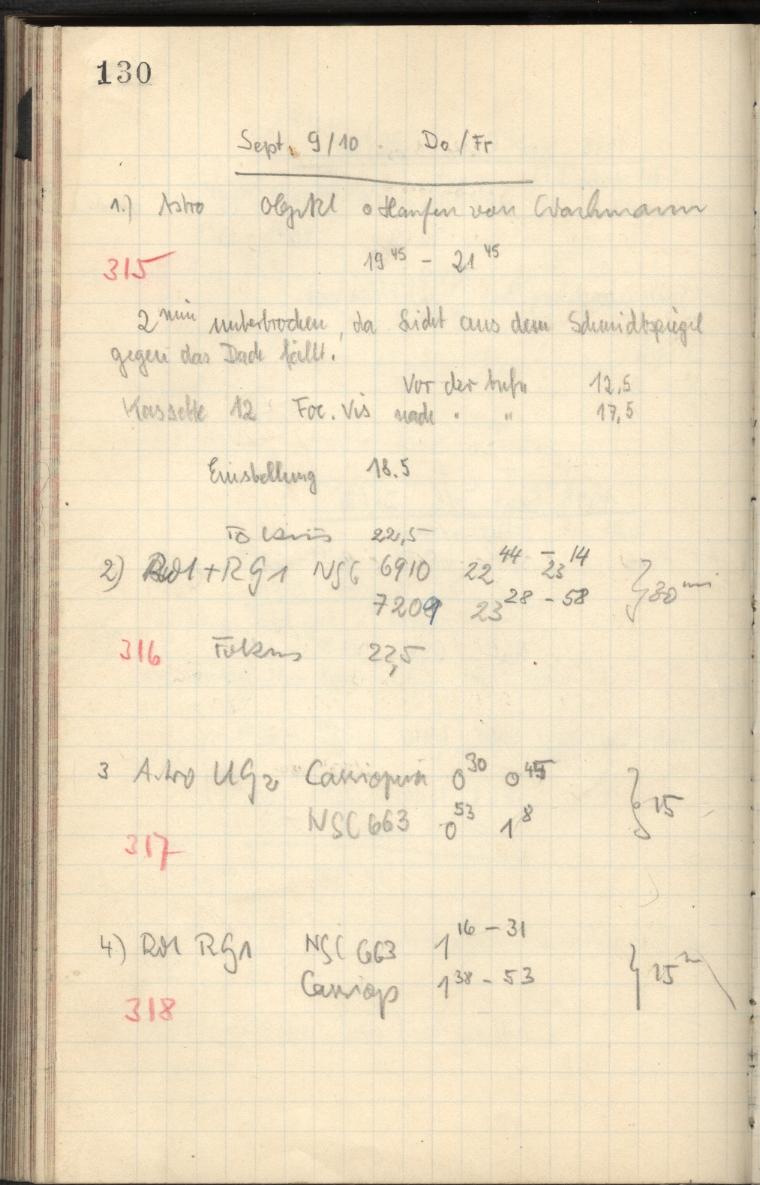 130
Sept. 9/10. Do/Fr
1.) Astro Objekt o Haufen von Wachmann
315 19 45 - 21 45
2 min unterbrochen, da Licht aus dem Schmidtspiegel
gegen das Dach fällt.
Vor der Aufn 12,5
Kassette 12 Foc. Vis nach " " 17,5
Einstellung 18.5
Fokus 22,5
2) Rot + RG1 NGC 6910 22 44 - 23 14 } 30 min
7209 23 28 - 58
316 Fokus 22,5
3 Astro UG2 Cassiopeia 0 30 0 45 } 15
NGC 663 0 53 1 8
317
4) Rot RG1 NGC 663 1 16 - 31 } 15 m
Cassiop 1 38 - 53
318